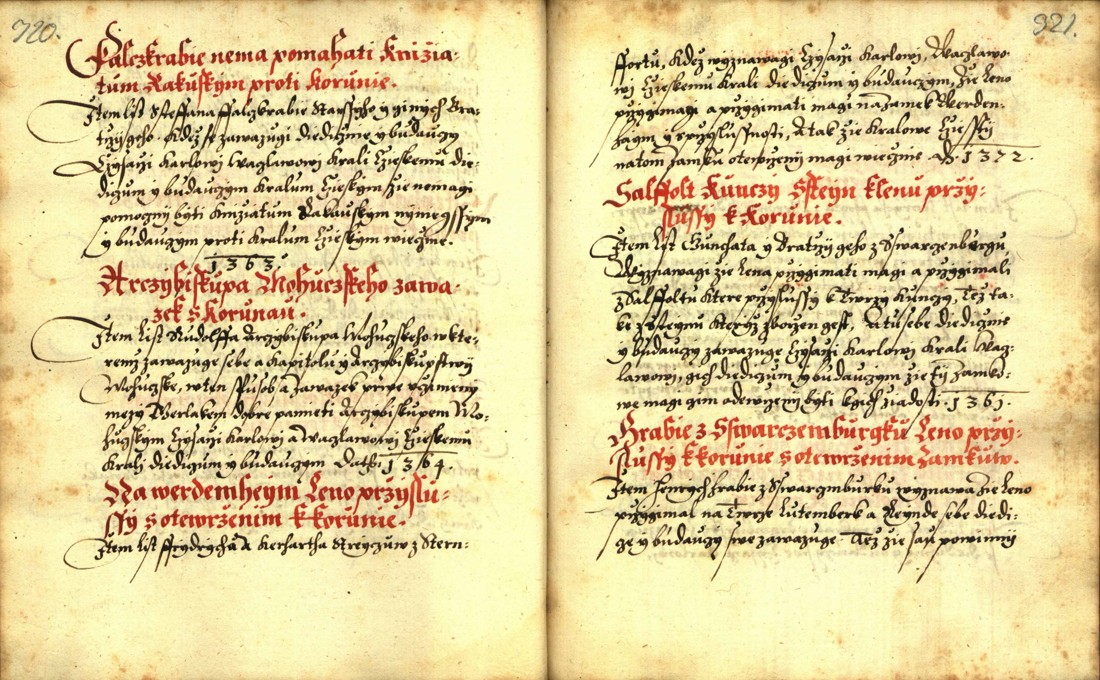 720.
Falczkrabie nema pomahati knizia-
tum Rakuskym proti korunie.
Item list Steffana ffalczkrabie starssyho y ginych Bra-
trzy geho. Kdez se zawazugi diediczme y buduczy
Czysarzi Karlowi Waczlawowi Krali Czieskemu die-
diczum y buduczym Kralum Czieskym zie nemagi
pomoczny byti knizatum Rakauskym nyniegssym
y buduczym proti Kralum Czieskym wieczne.
1363.
Arczybiskupa Mohuczskeho zawa-
zek s korunau.
Item list Rudolffa Arczybiskupa Mohuczskeho w kte-
remz zawazuge sebe a Kapitolu y Arczybiskupstwij
Mohuczske, w ten spusob a zawazek prwe uczinieny
mezy Gerlakem dobre pamieti Arczybiskupem Mo-
huczskym Czysarzi Karlowi a Waczlawowi Czieskemu
Krali diediczum y buduczym Dat. 1364.
Na werdemheym Leno przyslu-
ssy s otewrzenim k korunie.
Item list ffrydrycha a Kerhartha Streyczuw z Stern-
921.
ffortu, kdez wyznawagi Czysarzi Karlowi, Waczlawo-
wi Czieskemu Krali diediczum y buduczym, zie leno
przygimagi a przygimati magi na zamek Werden-
haym y s przyslussnosti, A tak zie Kralowe Cziessti
na tom zamku otewrzeny magi wieczne. 1372.
Salffolt Kunczy Ssteyn klenu przy-
slussy k Korunie.
Item list Gunchata y Bratrzy geho z Swarczenburgu
Wyznawagi zie lena przygimati magi a przygimali
z Salffoltu ktere przyslussy k Twrzy Kunczy, Tez ta-
ke z Steynu kteryz zborzen gest, A tu sebe diediczme
y buduczy zawazuge Czysarzi Karlowi Krali Wacz-
lawowi, gich diediczum y buduczym zie ty zamko-
we magi gim odewrzeny byti k gich ziadosti. 1361.
Hrabie z Sswarczemburgku Leno przy-
slussy k korunie s otewrzenim zamkuw.
Item Henrych hrabie z Swarczmburku wyznawa zie leno
przygimal na Twrze Lutemberk a Reynde sebe diedi-
cze y buduczy swe zawazuge. Tez zie sau powinni